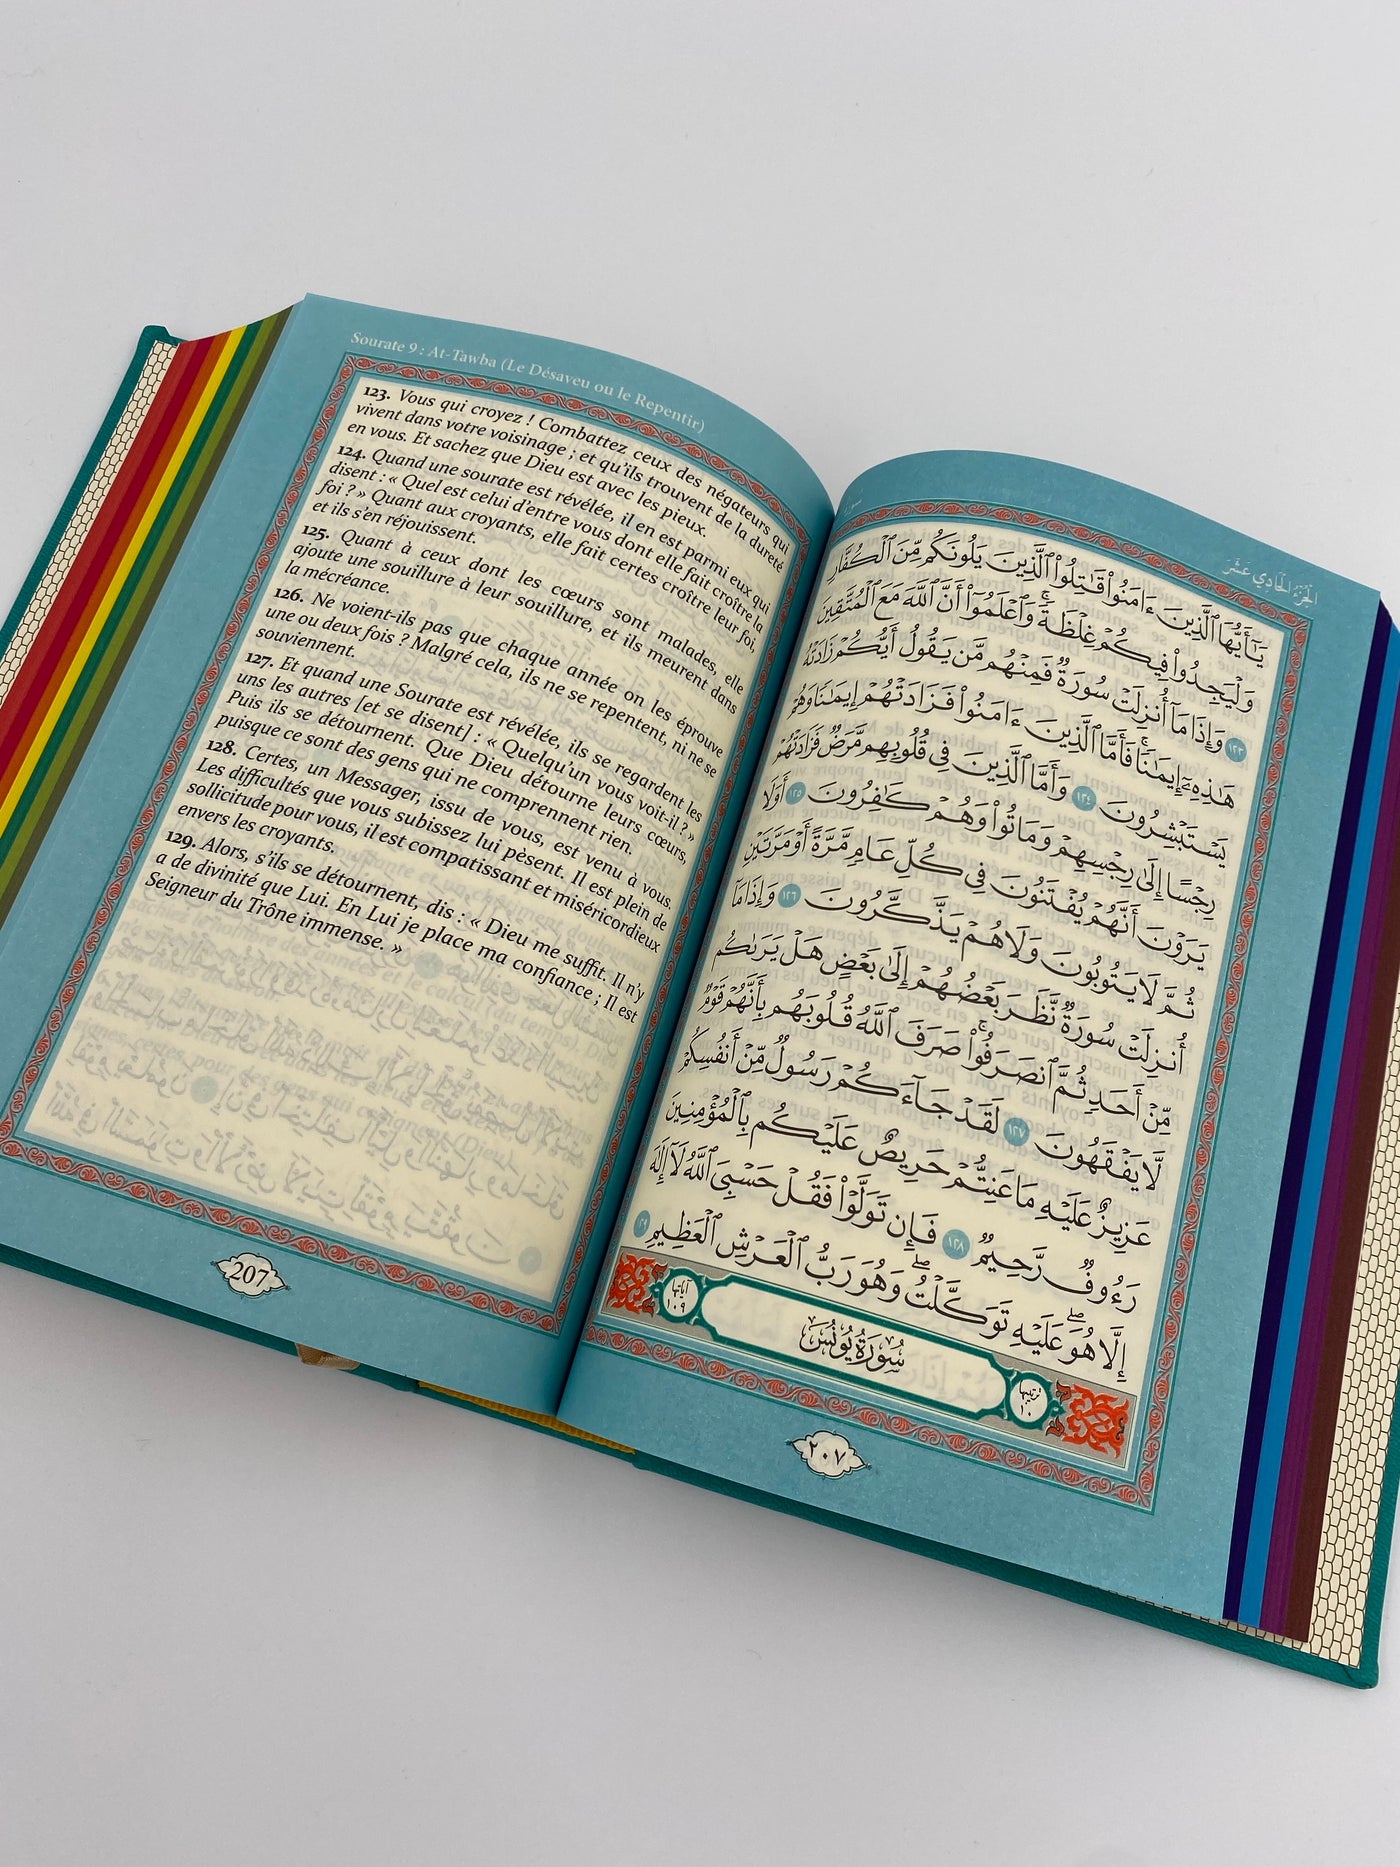 Sourate 9 : At-Tawba (Le Désaveu ou le Repentir)
123. Vous qui croyez ! Combattez ceux des négateurs qui
vivent dans votre voisinage ; et qu'ils trouvent de la dureté
en vous. Et sachez que Dieu est avec les pieux.
124. Quand une sourate est révélée, il en est parmi eux qui
disent : « Quel est celui d'entre vous dont elle fait croître la
foi ? » Quant aux croyants, elle fait certes croître leur foi,
et ils s'en réjouissent.
125. Quant à ceux dont les cœurs sont malades, elle
ajoute une souillure à leur souillure, et ils meurent dans
la mécréance.
126. Ne voient-ils pas que chaque année on les éprouve
une ou deux fois ? Malgré cela, ils ne se repentent, ni ne se
souviennent.
127. Et quand une Sourate est révélée, ils se regardent les
uns les autres [et se disent] : « Quelqu'un vous voit-il ? »
Puis ils se détournent. Que Dieu détourne leurs cœurs,
puisque ce sont des gens qui ne comprennent rien.
128. Certes, un Messager, issu de vous, est venu à vous.
Les difficultés que vous subissez lui pèsent. Il est plein de
sollicitude pour vous, il est compatissant et miséricordieux
envers les croyants.
129. Alors, s'ils se détournent, dis : « Dieu me suffit. Il n'y
a de divinité que Lui. En Lui je place ma confiance ; Il est
Seigneur du Trône immense. »
207
الجُزْءُ الحَادِي عَشَر
يَٰٓأَيُّهَا ٱلَّذِينَ ءَامَنُوا۟ قَٰتِلُوا۟ ٱلَّذِينَ يَلُونَكُم مِّنَ ٱلْكُفَّارِ
وَلْيَجِدُوا۟ فِيكُمْ غِلْظَةً ۚ وَٱعْلَمُوٓا۟ أَنَّ ٱللَّهَ مَعَ ٱلْمُتَّقِينَ
١٢٣ وَإِذَا مَآ أُنزِلَتْ سُورَةٌ فَمِنْهُم مَّن يَقُولُ أَيُّكُمْ زَادَتْهُ
هَٰذِهِۦٓ إِيمَٰنًا ۚ فَأَمَّا ٱلَّذِينَ ءَامَنُوا۟ فَزَادَتْهُمْ إِيمَٰنًا وَهُمْ
يَسْتَبْشِرُونَ ١٢٤ وَأَمَّا ٱلَّذِينَ فِى قُلُوبِهِم مَّرَضٌ فَزَادَتْهُمْ
رِجْسًا إِلَىٰ رِجْسِهِمْ وَمَاتُوا۟ وَهُمْ كَٰفِرُونَ ١٢٥ أَوَلَا
يَرَوْنَ أَنَّهُمْ يُفْتَنُونَ فِى كُلِّ عَامٍ مَّرَّةً أَوْ مَرَّتَيْنِ
ثُمَّ لَا يَتُوبُونَ وَلَا هُمْ يَذَّكَّرُونَ ١٢٦ وَإِذَا مَآ
أُنزِلَتْ سُورَةٌ نَّظَرَ بَعْضُهُمْ إِلَىٰ بَعْضٍ هَلْ يَرَىٰكُم
مِّنْ أَحَدٍ ثُمَّ ٱنصَرَفُوا۟ ۚ صَرَفَ ٱللَّهُ قُلُوبَهُم بِأَنَّهُمْ قَوْمٌ
لَّا يَفْقَهُونَ ١٢٧ لَقَدْ جَآءَكُمْ رَسُولٌ مِّنْ أَنفُسِكُمْ
عَزِيزٌ عَلَيْهِ مَا عَنِتُّمْ حَرِيصٌ عَلَيْكُم بِٱلْمُؤْمِنِينَ
رَءُوفٌ رَّحِيمٌ ١٢٨ فَإِن تَوَلَّوْا۟ فَقُلْ حَسْبِىَ ٱللَّهُ لَآ إِلَٰهَ
إِلَّا هُوَ ۖ عَلَيْهِ تَوَكَّلْتُ ۖ وَهُوَ رَبُّ ٱلْعَرْشِ ٱلْعَظِيمِ ١٢٩
ترتيبها ١٠ سُورَةُ يُونُسَ آياتها ١٠٩
٢٠٧